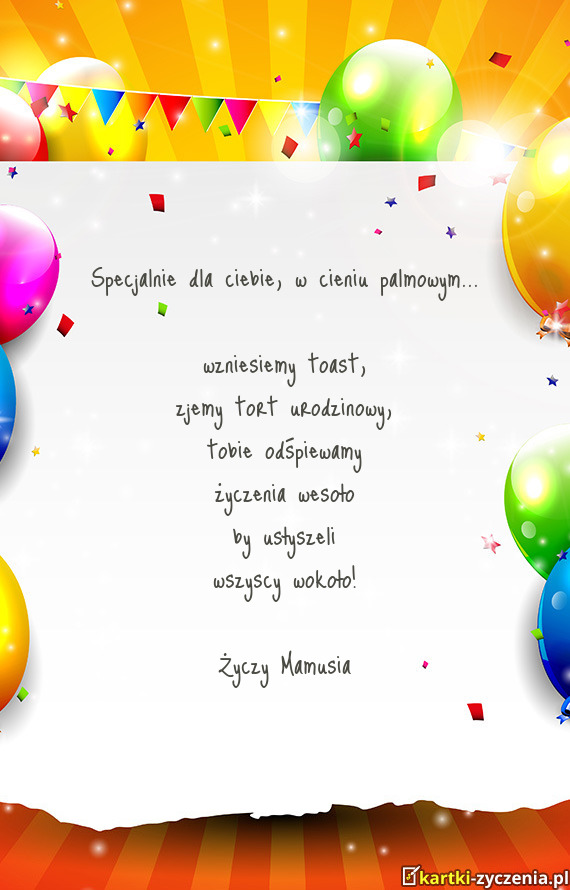 Specjalnie dla ciebie, w cieniu palmowym...
wzniesiemy toast,
zjemy tort urodzinowy,
tobie odśpiewamy
życzenia wesoło
by usłyszeli
wszyscy wokoło!
Życzy Mamusia
kartki-zyczenia.pl